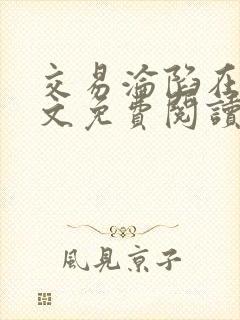 交易淪陷在
文免費閱讀
風見京子